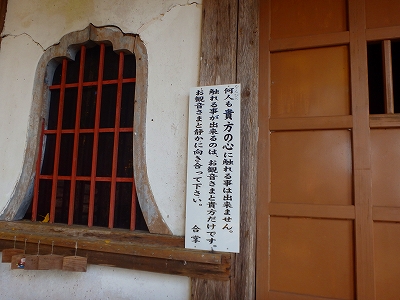 何人も貴方の心に触れる事は出来ません。
触れる事が出来るのは、お観音さまと貴方だけです。
お観音さまと静かに向き合って下さい。
合掌